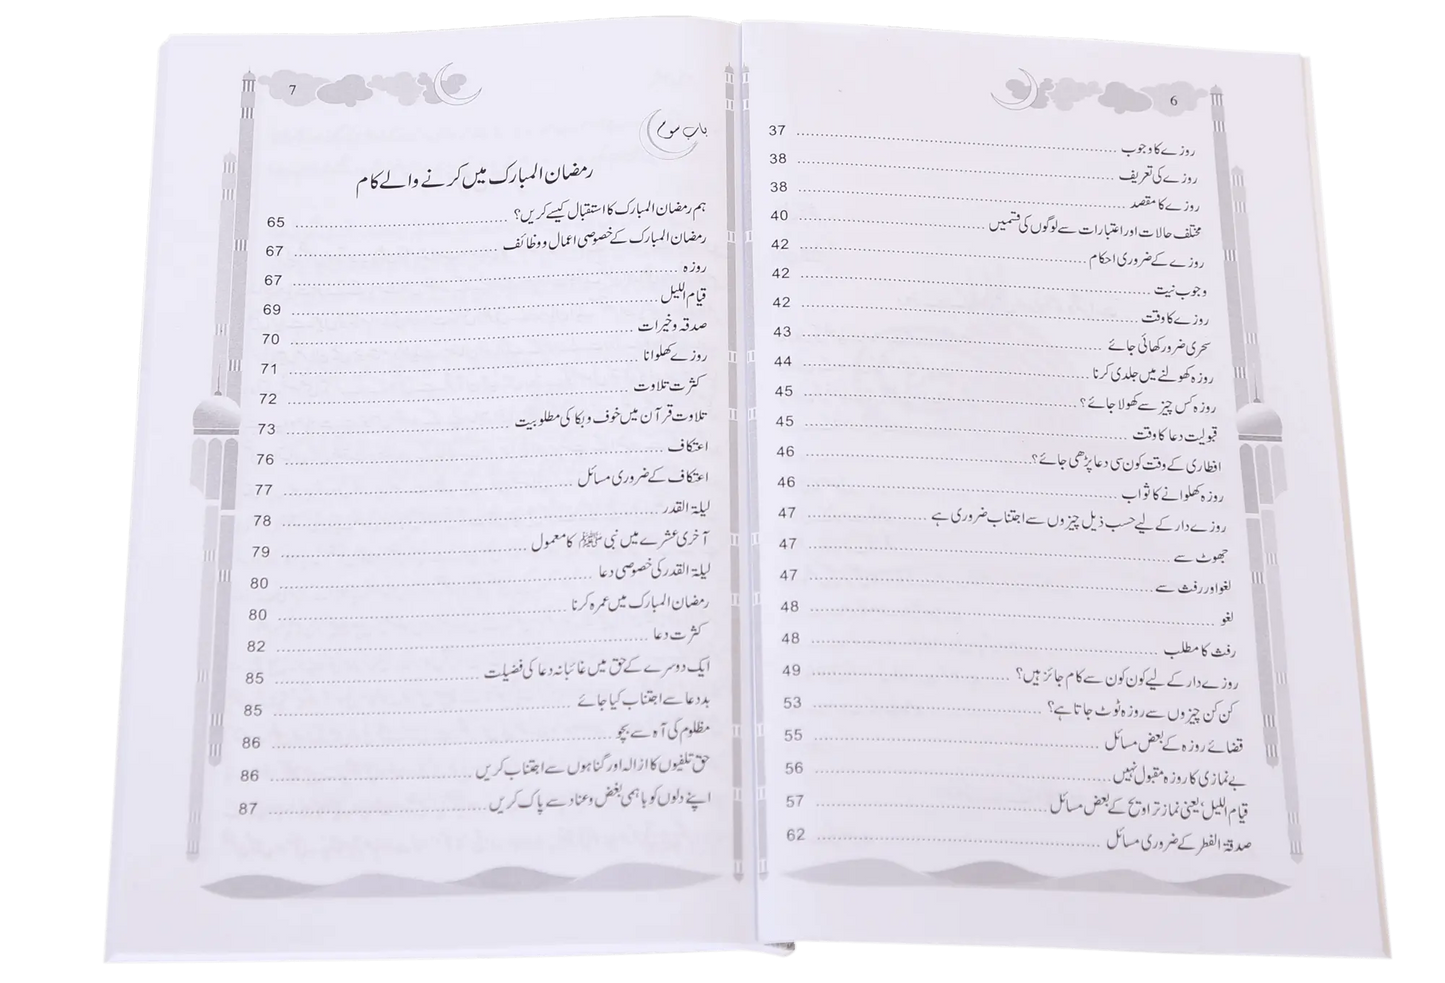 6
روزے کا وجوب ........ 37
روزے کی تعریف ........ 38
روزے کا مقصد ........ 38
مختلف حالات اور اعتبارات سے لوگوں کی قسمیں ........ 40
روزے کے ضروری احکام ........ 42
وجوب نیت ........ 42
روزے کا وقت ........ 42
سحری ضرور کھائی جائے ........ 43
روزہ کھولنے میں جلدی کرنا ........ 44
روزہ کس چیز سے کھولا جائے؟ ........ 45
قبولیت دعا کا وقت ........ 45
افطاری کے وقت کون سی دعا پڑھی جائے؟ ........ 46
روزہ کھلوانے کا ثواب ........ 46
روزے دار کے لیے حسب ذیل چیزوں سے اجتناب ضروری ہے ........ 47
جھوٹ سے ........ 47
لغو اور رفث سے ........ 47
لغو ........ 48
رفث کا مطلب ........ 48
روزے دار کے لیے کون کون سے کام جائز ہیں؟ ........ 49
کن کن چیزوں سے روزہ ٹوٹ جاتا ہے؟ ........ 53
قضائے روزہ کے بعض مسائل ........ 55
بے نمازی کا روزہ مقبول نہیں ........ 56
قیام اللیل، یعنی نماز تراویح کے بعض مسائل ........ 57
صدقۃ الفطر کے ضروری مسائل ........ 62
7
باب سوم
رمضان المبارک میں کرنے والے کام
ہم رمضان المبارک کا استقبال کیسے کریں؟ ........ 65
رمضان المبارک کے خصوصی اعمال و وظائف ........ 67
روزہ ........ 67
قیام اللیل ........ 69
صدقہ و خیرات ........ 70
روزے کھلوانا ........ 71
کثرت تلاوت ........ 72
تلاوت قرآن میں خوف و بکا کی مطلوبیت ........ 73
اعتکاف ........ 76
اعتکاف کے ضروری مسائل ........ 77
لیلۃ القدر ........ 78
آخری عشرے میں نبی ﷺ کا معمول ........ 79
لیلۃ القدر کی خصوصی دعا ........ 80
رمضان المبارک میں عمرہ کرنا ........ 80
کثرت دعا ........ 82
ایک دوسرے کے حق میں غائبانہ دعا کی فضیلت ........ 85
بددعا سے اجتناب کیا جائے ........ 85
مظلوم کی آہ سے بچو ........ 86
حق تلفیوں کا ازالہ اور گناہوں سے اجتناب کریں ........ 86
اپنے دلوں کو باہمی بغض و عناد سے پاک کریں ........ 87